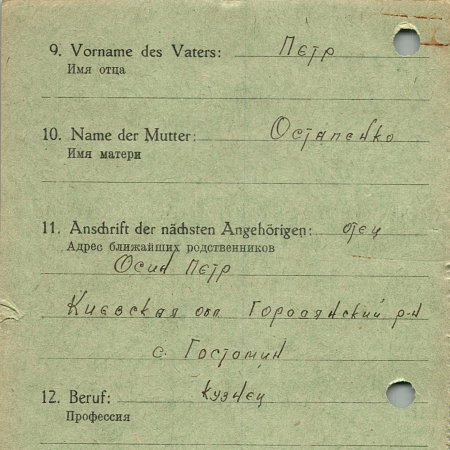 9. Vorname des Vaters: Петр
Имя отца
10. Name der Mutter: Остапенко
Имя матери
11. Anschrift der nächsten Angehörigen: отец
Адрес ближайших родственников
Осин Петр
Киевская обл. Городянский р-н
с. Гостомин
12. Beruf: Кузнец
Профессия